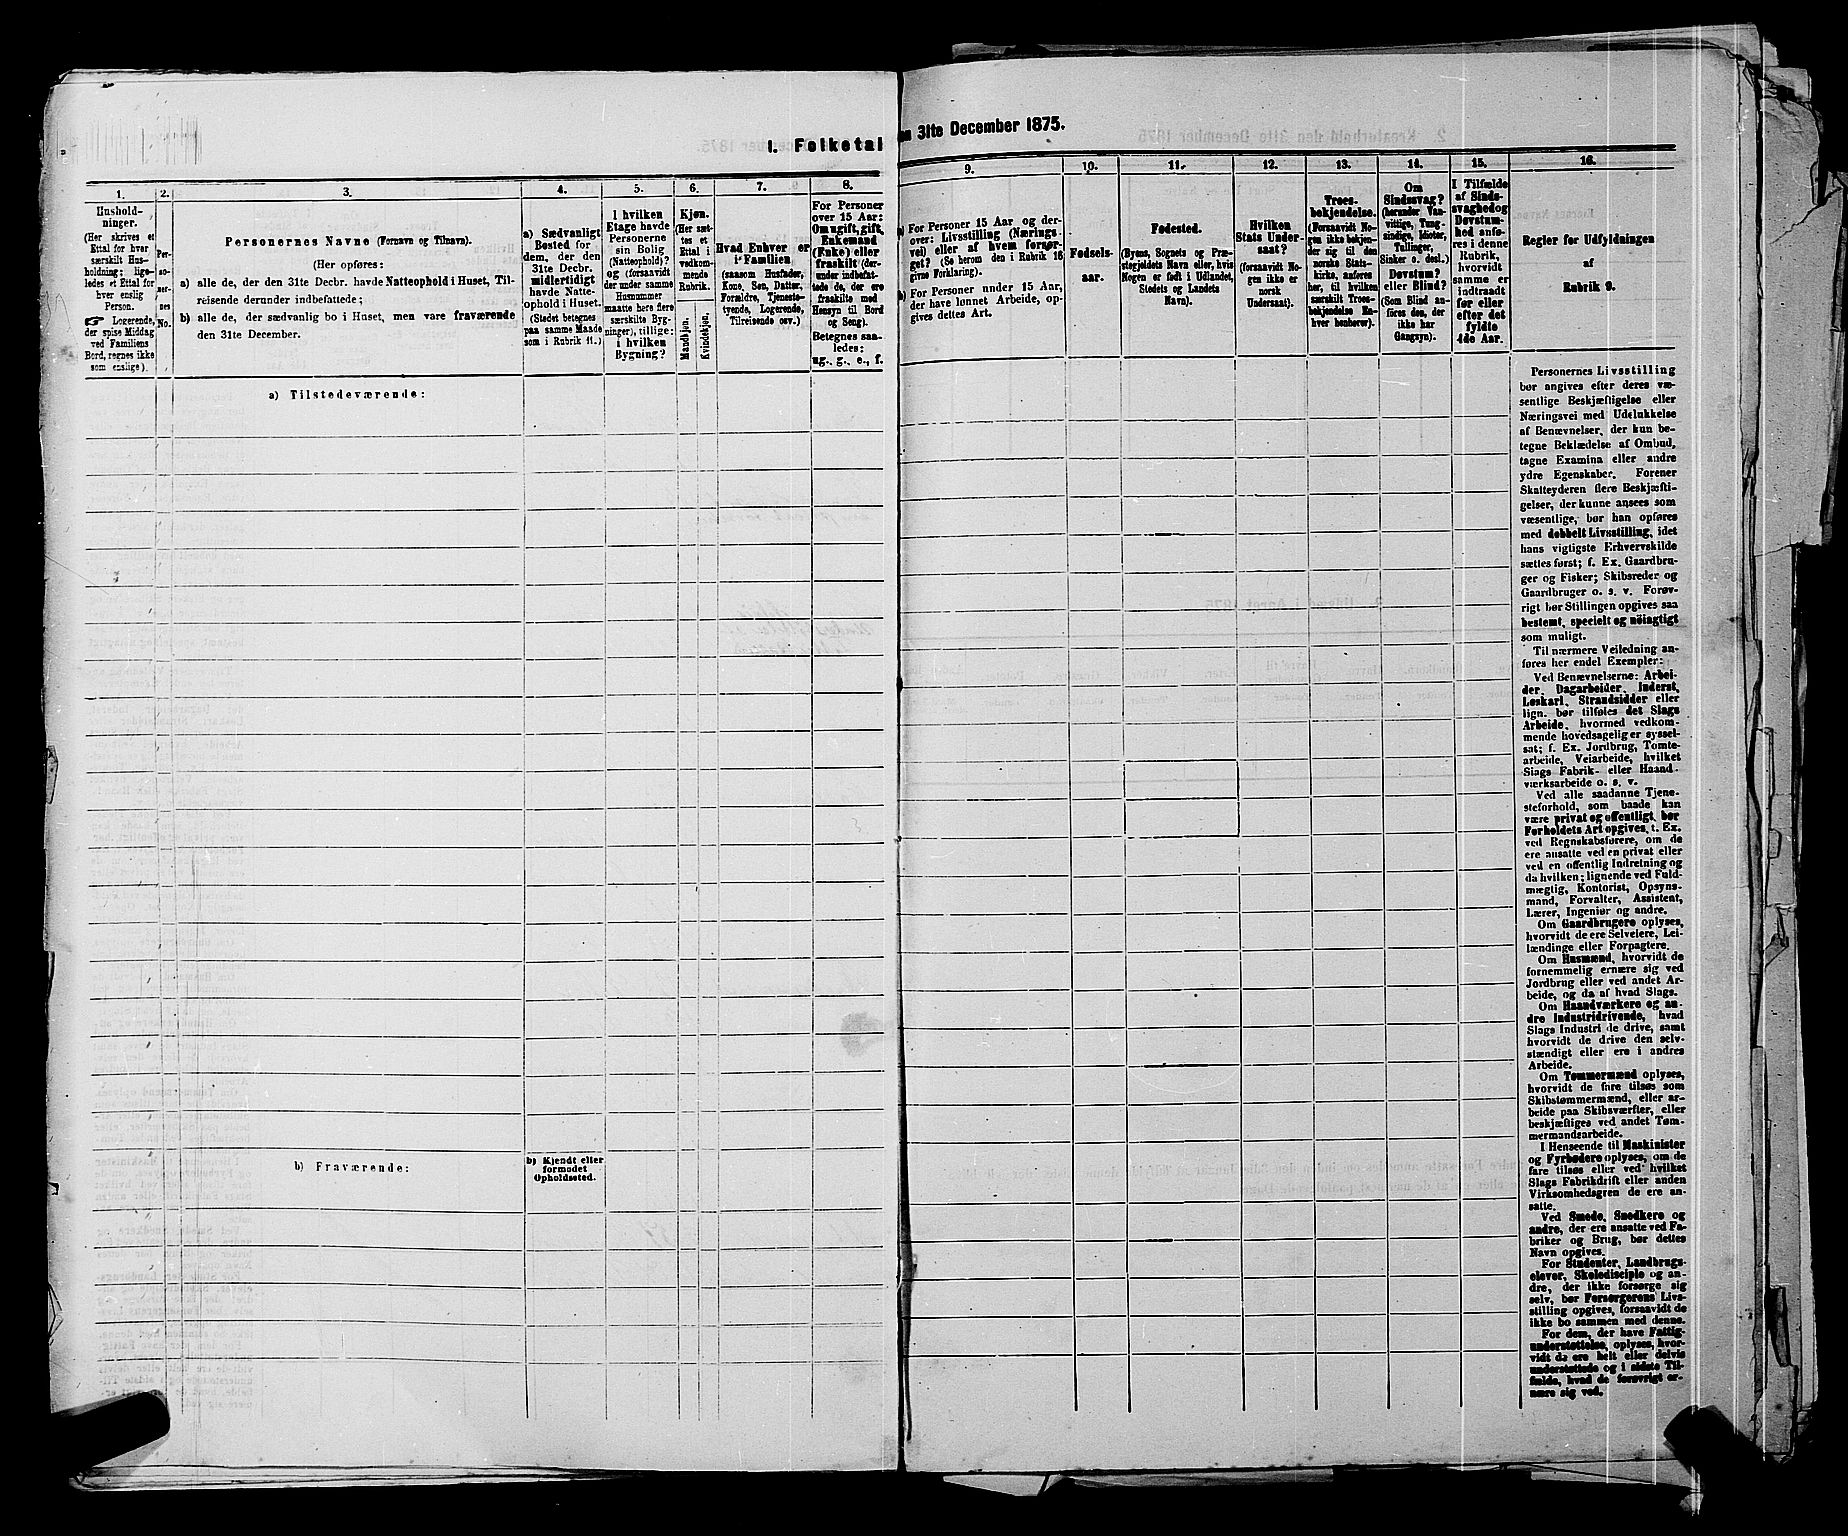 I. Folketal
en 31te December 1875.
1.
2.
3.
4.
5.
6.
7.
8.
9.
10.
11.
12.
13.
14.
15.
16.
Hushold-
ninger.
(Her skrives et
Ettal for hver
særskilt Hus-
holdning; lige-
ledes et Ettal for
hver enslig
Person.
☞ Logerende,
der spise Middag
ved Familiens
Bord, regnes ikke
som enslige).
Per-
so-
ner-
nes
No.
Personernes Navne (Fornavn og Tilnavn).
(Her opføres:
a) alle de, der den 31te Decbr. havde Natteophold i Huset, Til-
reisende derunder indbefattede;
b) alle de, der sædvanlig bo i Huset, men vare fraværende
den 31te December.
a) Sædvanligt
Bosted for
dem, der den
31te Decbr.
midlertidigt
havde Natte-
ophold i Huset.
(Stedet betegnes
paa samme Maade
som i Rubrik 11.)
I hvilken
Etage havde
Personerne
sin Bolig
(Natteophold)?
og (forsaavidt
der under samme
Husnummer
maatte høre flere
særskilte Byg-
ninger), tillige:
i hvilken
Bygning?
Kjøn.
(Her sæt-
tes et
Ettal i
vedkom-
mende
Rubrik.
Mandkjøn.
Kvindekjøn.
Hvad Enhver er
i Familien
(saasom Husfader,
Kone, Søn, Datter,
Forældre, Tjeneste-
tyende, Logerende,
Tilreisende osv.)
For Personer
over 15 Aar:
Om ugift, gift,
Enkemand
(Enke) eller
fraskilt (der-
under indbefat-
tede de, der ere
fraskilte med
Hensyn til Bord
og Seng).
Betegnes saa-
ledes:
ug., g., e., f.
a) For Personer 15 Aar og der-
over: Livsstilling (Nærings-
vei) eller af hvem forsør-
get? (Se herom den i Rubrik 16
givne Forklaring).
b) For Personer under 15 Aar,
der have lønnet Arbeide, op-
gives dettes Art.
Fødsels-
aar.
Fødested.
(Byens, Sognets og Præ-
stegjeldets Navn eller, hvis
Nogen er født i Udlandet,
Stedets og Landets
Navn).
Hvilken
Stats Under-
saat?
(forsaavidt No-
gen ikke er
norsk
Undersaat).
Troes-
bekjendelse.
(Forsaavidt No-
gen ikke bekjen-
der sig til den
norske Stats-
kirke, anføres
her, til hvilken
særskilt Troes-
bekjendelse En-
hver henhører).
Om
Sindssvag?
(herunder Van-
vittige, Tung-
sindige, Idioter,
Tullinger,
Sinker o. desl.)
Døvstum?
eller Blind?
(Som Blind an-
føres den, der
ikke har
Gangsyn).
I Tilfælde
af Sinds-
svaghed og
Døvstum-
hed anfø-
res i denne
Rubrik,
hvorvidt
samme er
indtraadt
før eller
efter det
fyldte
4de Aar.
Regler for Udfyldningen
af
Rubrik 9.
a) Tilstedeværende:
b) Fraværende:
b) Kjendt eller
formodet
Opholdssted.
Personernes Livsstilling
bør angives efter deres væ-
sentlige Beskjæftigelse eller
Næringsvei med Udelukkelse
af Benævnelser, der kun be-
tegne Beklædelse af Ombud,
tagne Examina eller andre
ydre Egenskaber. Forener
Skatteyderen flere Beskjæfti-
gelser, der kunne ansees som
væsentlige, bør han opføres
med dobbelt Livsstilling, idet
hans vigtigste Erhvervskilde
sættes først; f. Ex. Gaardbru-
ger og Fisker; Skibsreder og
Gaardbruger o. s. v. Forøv-
rigt bør Stillingen opgives saa
bestemt, specielt og nöiagtigt
som muligt.
Til nærmere Veiledning an-
føres her endel Exempler:
Ved Benævnelserne: Arbei-
der, Dagarbeider, Inderst,
Løskarl, Strandsidder eller
lign. bør tilføies det Slags
Arbeide, hvormed vedkom-
mende hovedsagelig er syssel-
sat; f. Ex. Jordbrug, Tomte-
arbeide, Veiarbeide, hvilket
Slags Fabrik- eller Haand-
værksarbeide o. s. v.
Ved alle saadanne Tjene-
steforhold, som baade kan
være privat og offentligt, bør
Forholdets Art opgives, t. Ex.
ved Regnskabsførere, om de
ere ansatte ved en privat eller
ved en offentlig Indretning og
da hvilken; lignende ved Fuld-
mægtig, Kontorist, Opsyns-
mand, Forvalter, Assistent,
Lærer, Ingeniør og andre.
Om Gaardbrugere oplyses,
hvorvidt de ere Selveiere, Lei-
lændinge eller Forpagtere.
Om Husmænd, hvorvidt de
fornemmelig ernære sig ved
Jordbrug eller ved andet Ar-
beide, og da af hvad Slags.
Om Haandværkere og an-
dre Industridrivende, hvad
Slags Industri de drive, samt
hvorvidt de drive den selv-
stændigt eller ere i andres
Arbeide.
Om Tømmermænd oplyses,
hvorvidt de fare tilsøs som
Skibstømmermænd, eller ar-
beide paa Skibsværfter, eller
beskjæftiges ved andet Tøm-
mermandsarbeide.
I Henseende til Maskinister
og Fyrbødere oplyses, om de
fare tilsøs eller ved hvilket
Slags Fabrikdrift eller anden
Virksomhedsgren de ere an-
satte.
Ved Smede, Snedkere og
andre, der ere ansatte ved Fa-
briker og Brug, bør dettes
Navn opgives.
For Studenter, Landbrugs-
elever, Skoledisciple og an-
dre, der ikke forsørge sig
selv, bør Forsørgerens Livs-
stilling opgives, forsaavidt de
ikke bo sammen med denne.
For dem, der have Fattig-
understøttelse, oplyses, hvor-
vidt de ere helt eller delvis
understøttede og i sidste Til-
fælde, hvad de forøvrigt er-
nære sig ved.